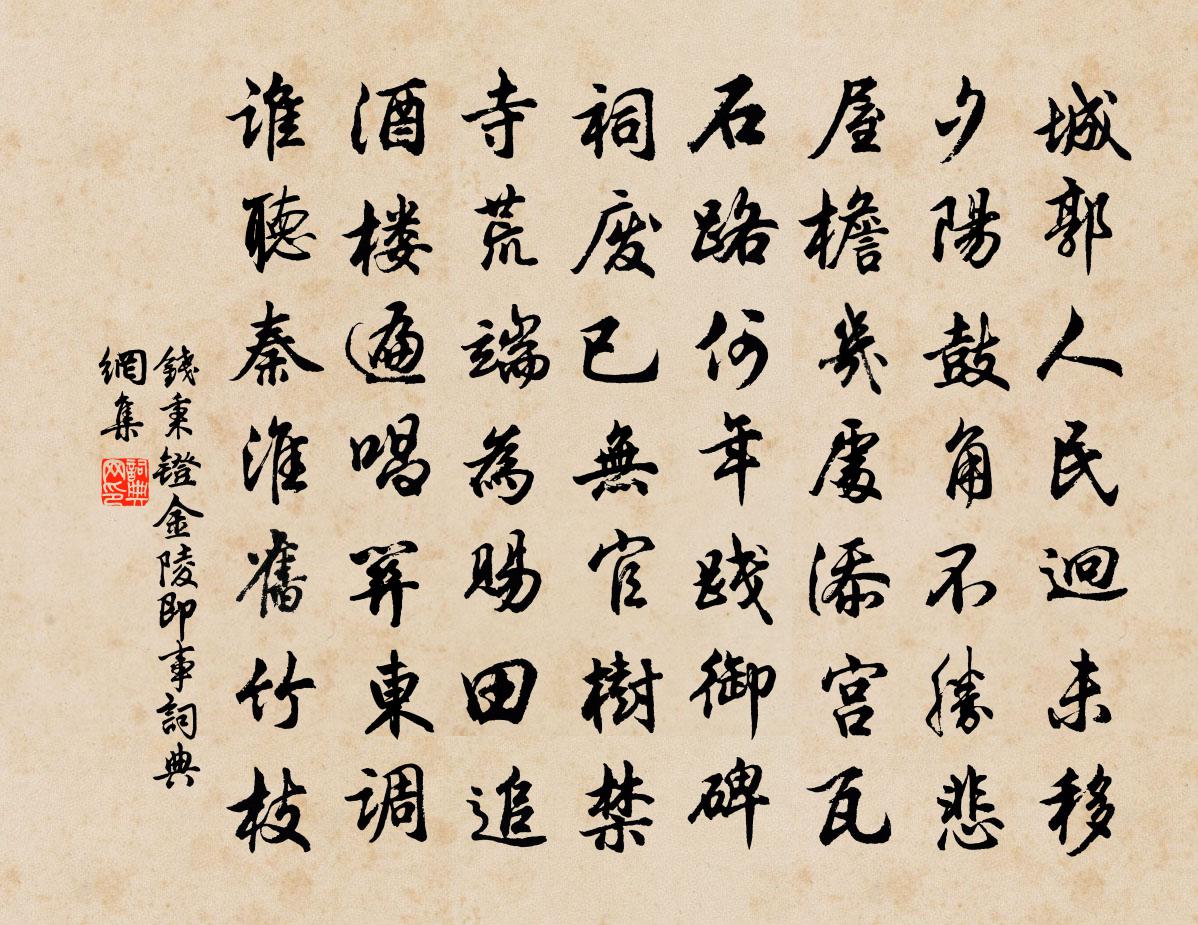 城郭人民迥未移
夕陽鼓角不勝悲
屋檐幾處添宮瓦
石路何年踐御碑
祠废已無官樹禁
寺荒端為賜田追
酒楼遍唱羿東調
谁聽秦淮舊竹枝
錢秉鐙金陵即事詞典
網集
詞典网印